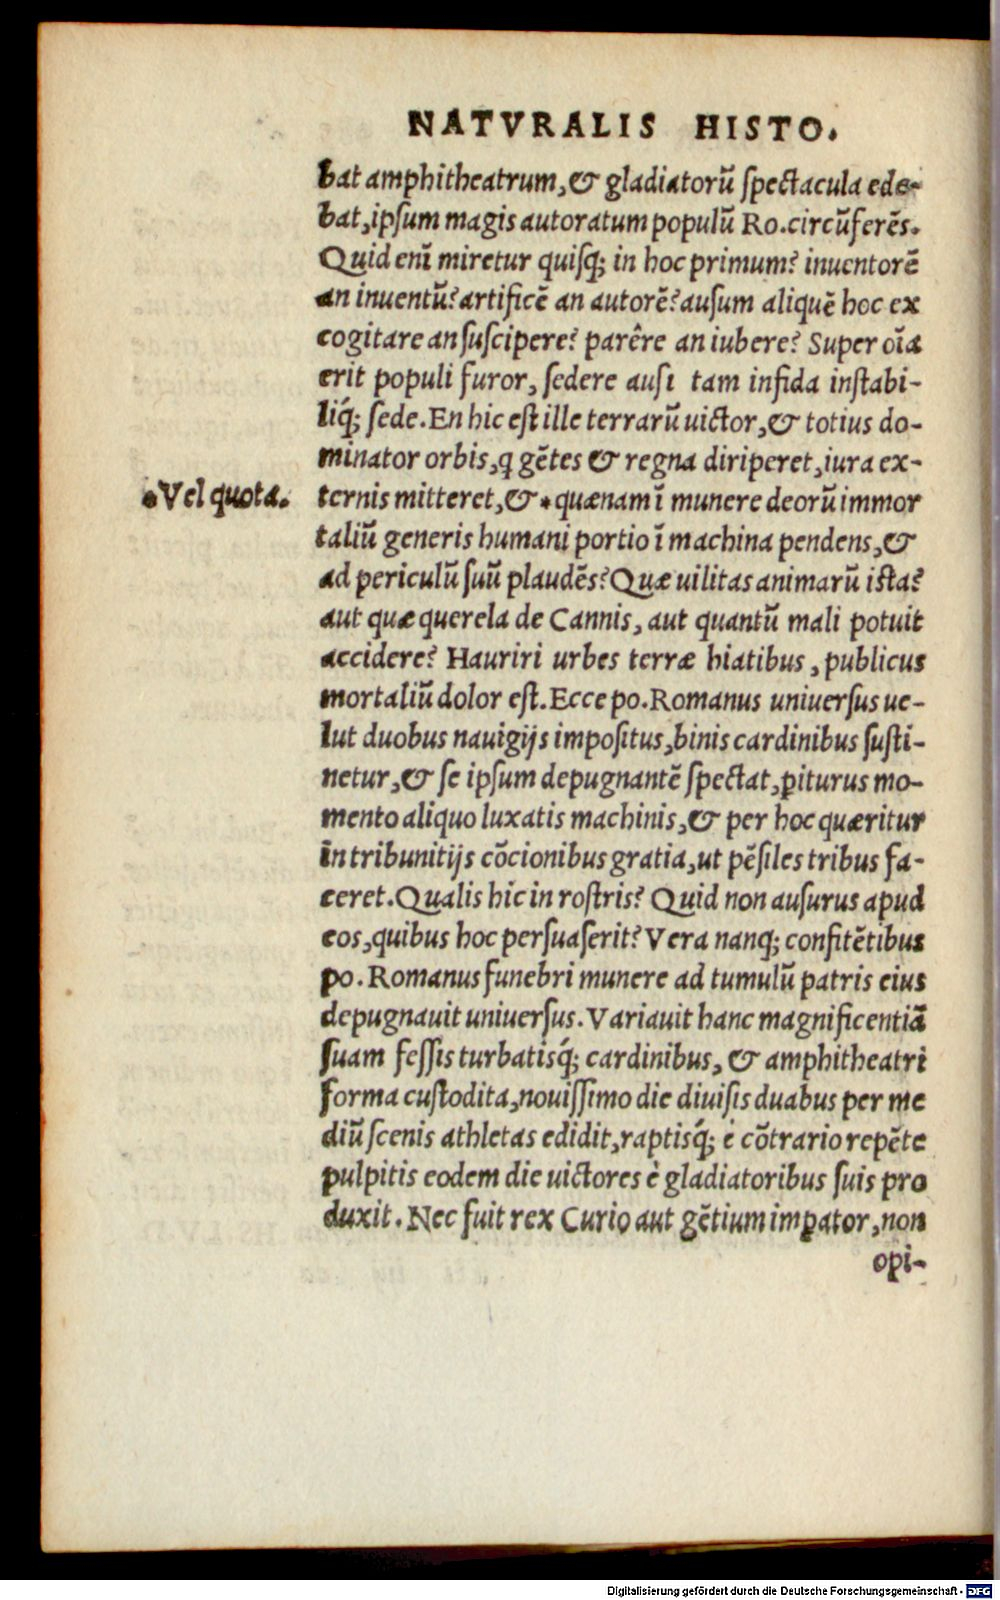 NATVRALIS HISTO.
bat amphitheatrum, & gladiatorū ſpectacula ede-
bat, ipſum magis autoratum populū Ro. circūferēs.
Quid enī miretur quiſq; in hoc primum? inuentorē
an inuentū? artificē an autorē? auſum aliquē hoc ex
cogitare an ſuſcipere? parêre an iubere? Super oīa
erit populi furor, ſedere auſi tam infida inſtabi-
liq́; ſede. En hic eſt ille terrarū uictor, & totius do-
minator orbis, q gētes & regna diriperet, iura ex-
*Vel quota.
ternis mitteret, & *quænam ī munere deorū immor
taliū generis humani portio ī machina pendens, &
ad periculū ſuū plaudēs? Quæ uilitas animarū iſta?
aut quæ querela de Cannis, aut quantū mali potuit
accidere? Hauriri urbes terræ hiatibus, publicus
mortaliū dolor eſt. Ecce po. Romanus uniuerſus ue-
lut duobus nauigijs impoſitus, binis cardinibus ſuſti-
netur, & ſe ipſum depugnantē ſpectat, ꝑiturus mo-
mento aliquo luxatis machinis, & per hoc quæritur
in tribunitijs cōcionibus gratia, ut pēſiles tribus fa-
ceret. Qualis hic in roſtris? Quid non auſurus apud
eos, quibus hoc perſuaſerit? Vera nanq; confitētibus
po. Romanus funebri munere ad tumulū patris eius
depugnauit uniuerſus. Variauit hanc magnificentiā
ſuam feſſis turbatisq́; cardinibus, & amphitheatri
forma cuſtodita, nouiſſimo die diuiſis duabus per me
diū ſcenis athletas edidit, raptisq́; è cōtrario repēte
pulpitis eodem die uictores è gladiatoribus ſuis pro
duxit. Nec fuit rex Curio aut gētium imꝑator, non
opi-
Digitalisierung gefördert durch die Deutsche Forschungsgemeinschaft - DFG